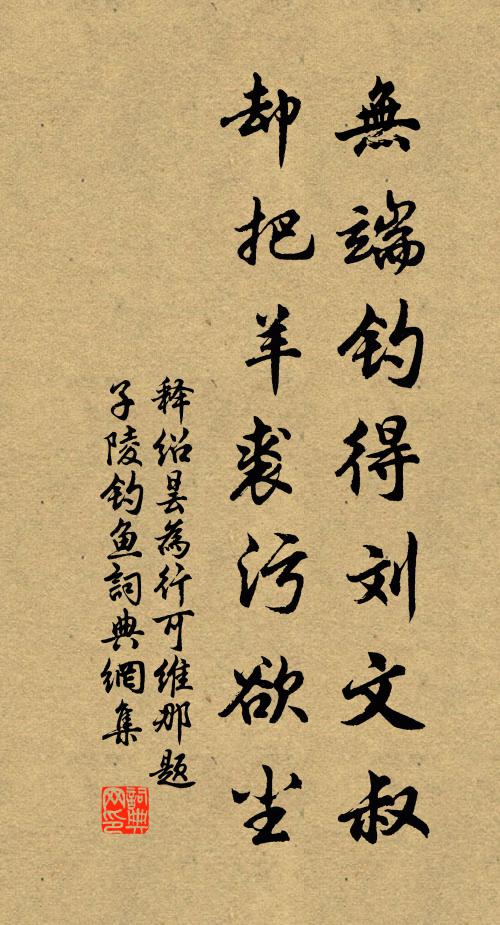 無端钓得刘文叔
却把羊裘污欲尘
释绍昙為行可维那题
子陵钓鱼詞典網集
詞典网印